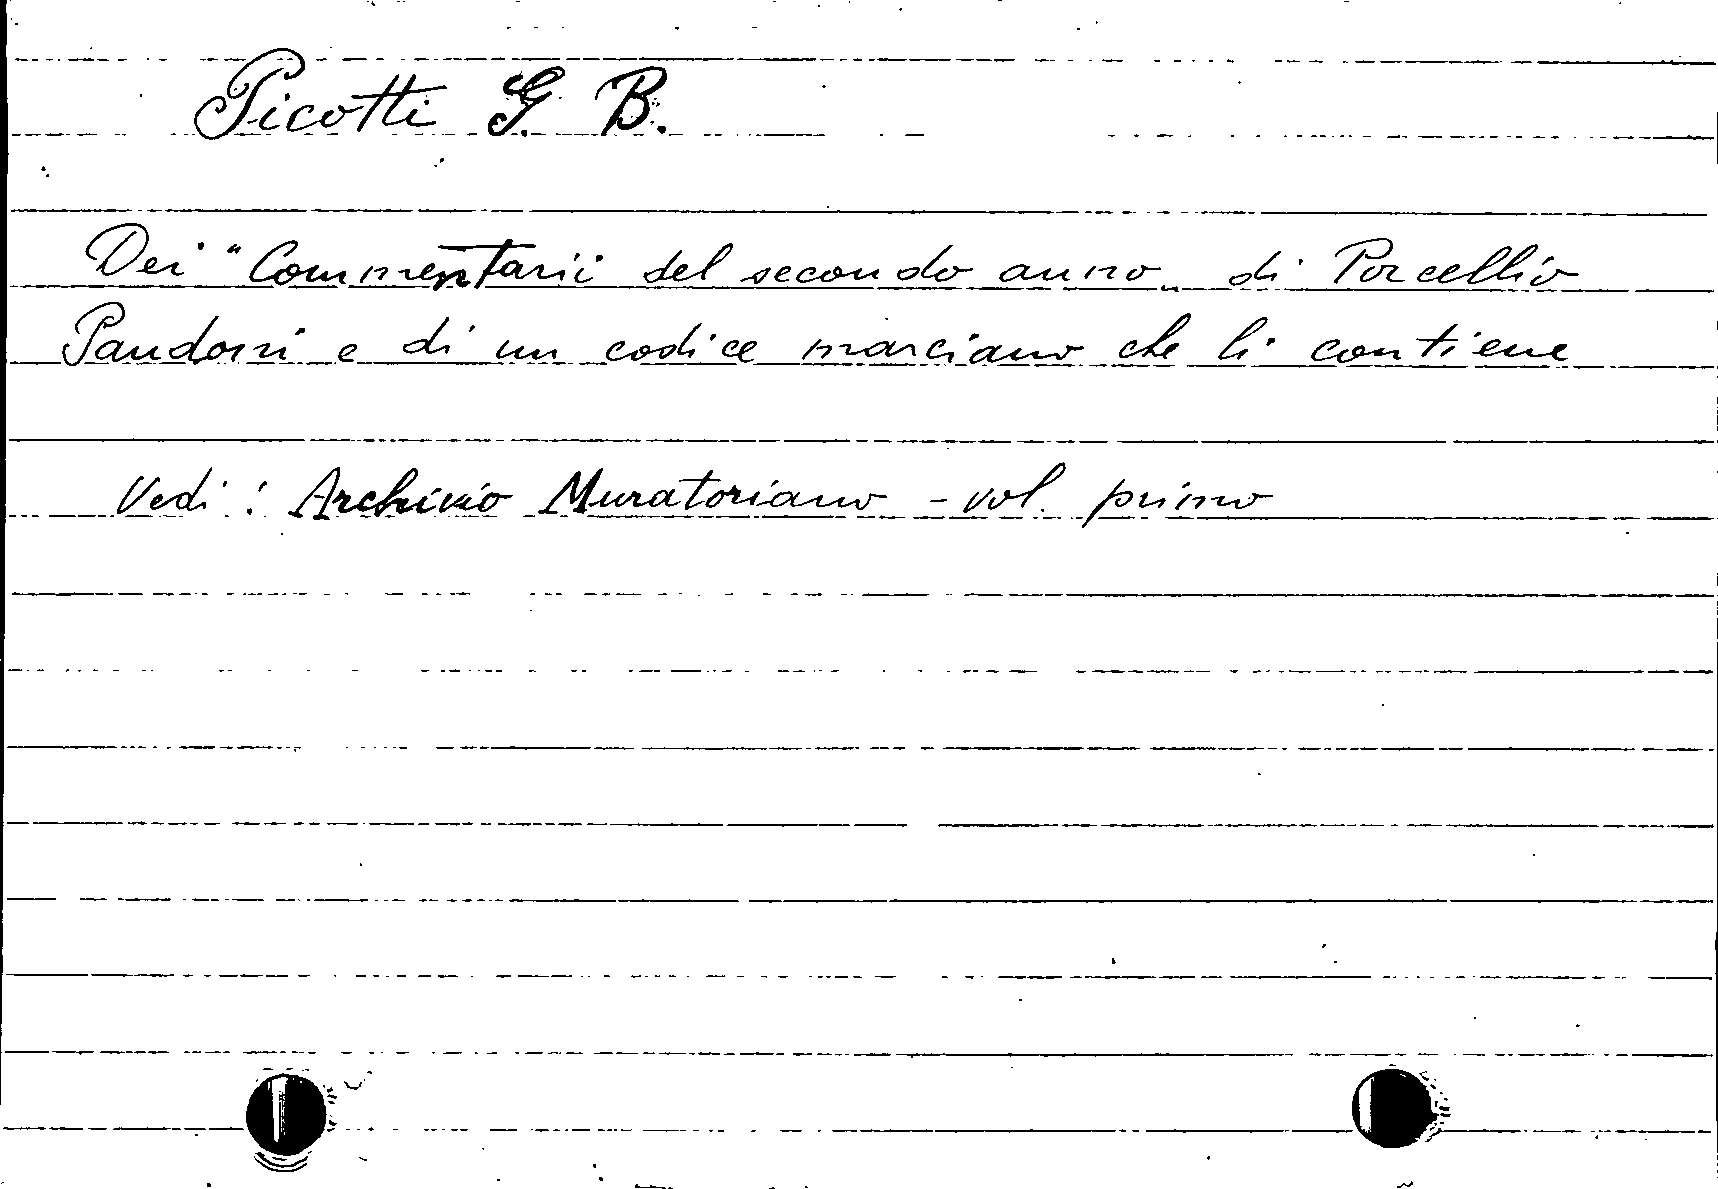 Picotti G. B.
Dei "Commentarii del secondo anno„ di Porcellio
Pandoni e di un codice marciano che li contiene
Vedi: Archivio Muratoriano - vol. primo